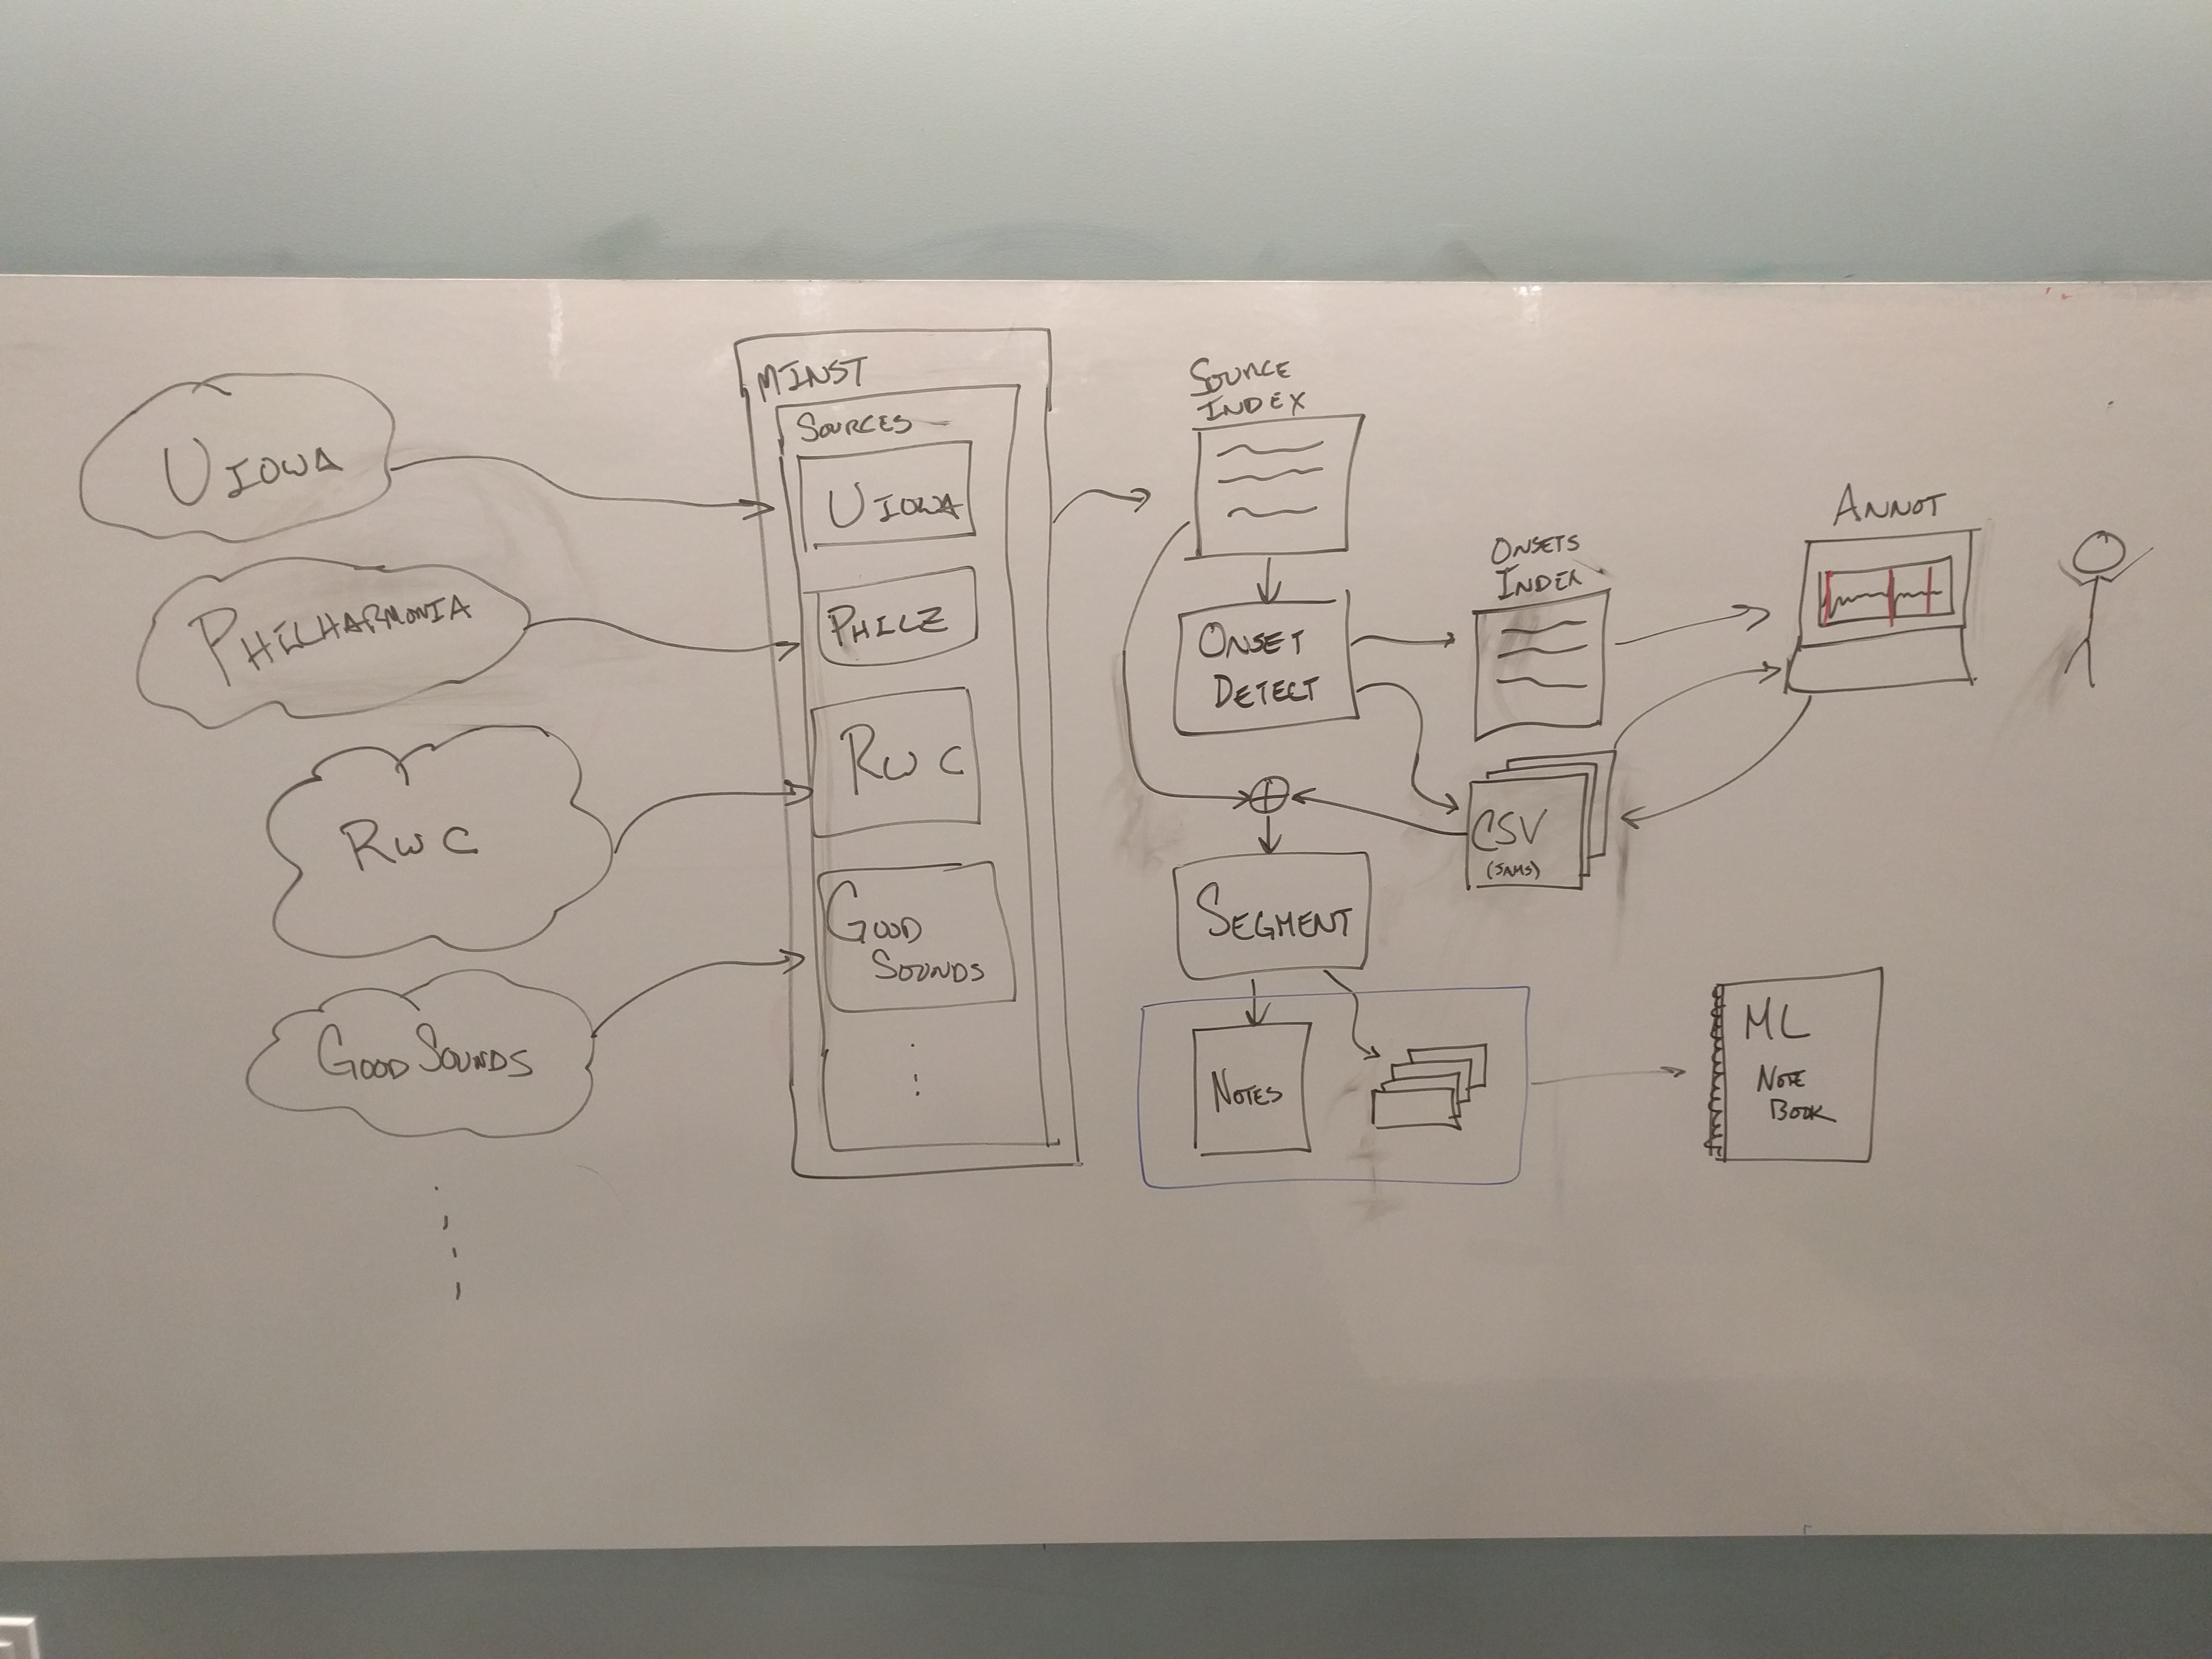 UIOWA
PHILHARMONIA
RWC
GOOD SOUNDS
MINST
SOURCES
UIOWA
PHILZ
RWC
GOOD
SOUNDS
SOURCE
INDEX
ONSET
DETECT
ONSETS
INDEX
ANNOT
CSV
(JAMS)
SEGMENT
NOTES
ML
NOTE
BOOK